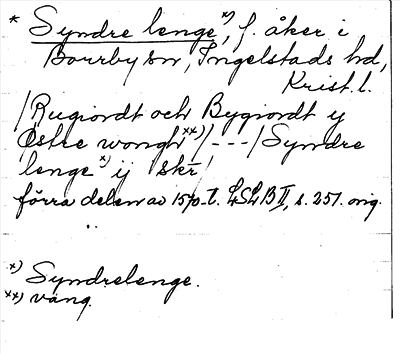 * Syndre lenge x), f. åker i
Borrby sn, Ingelstads hd,
Krist. l.
/Rugiordt och Bygiordt y
Østre wongh xx)/---/Syndre
lenge x) ij skr̄/
förra delen av 1570-t. LSLB II, s. 251. orig.
x) Syndrelenge.
xx) vång.